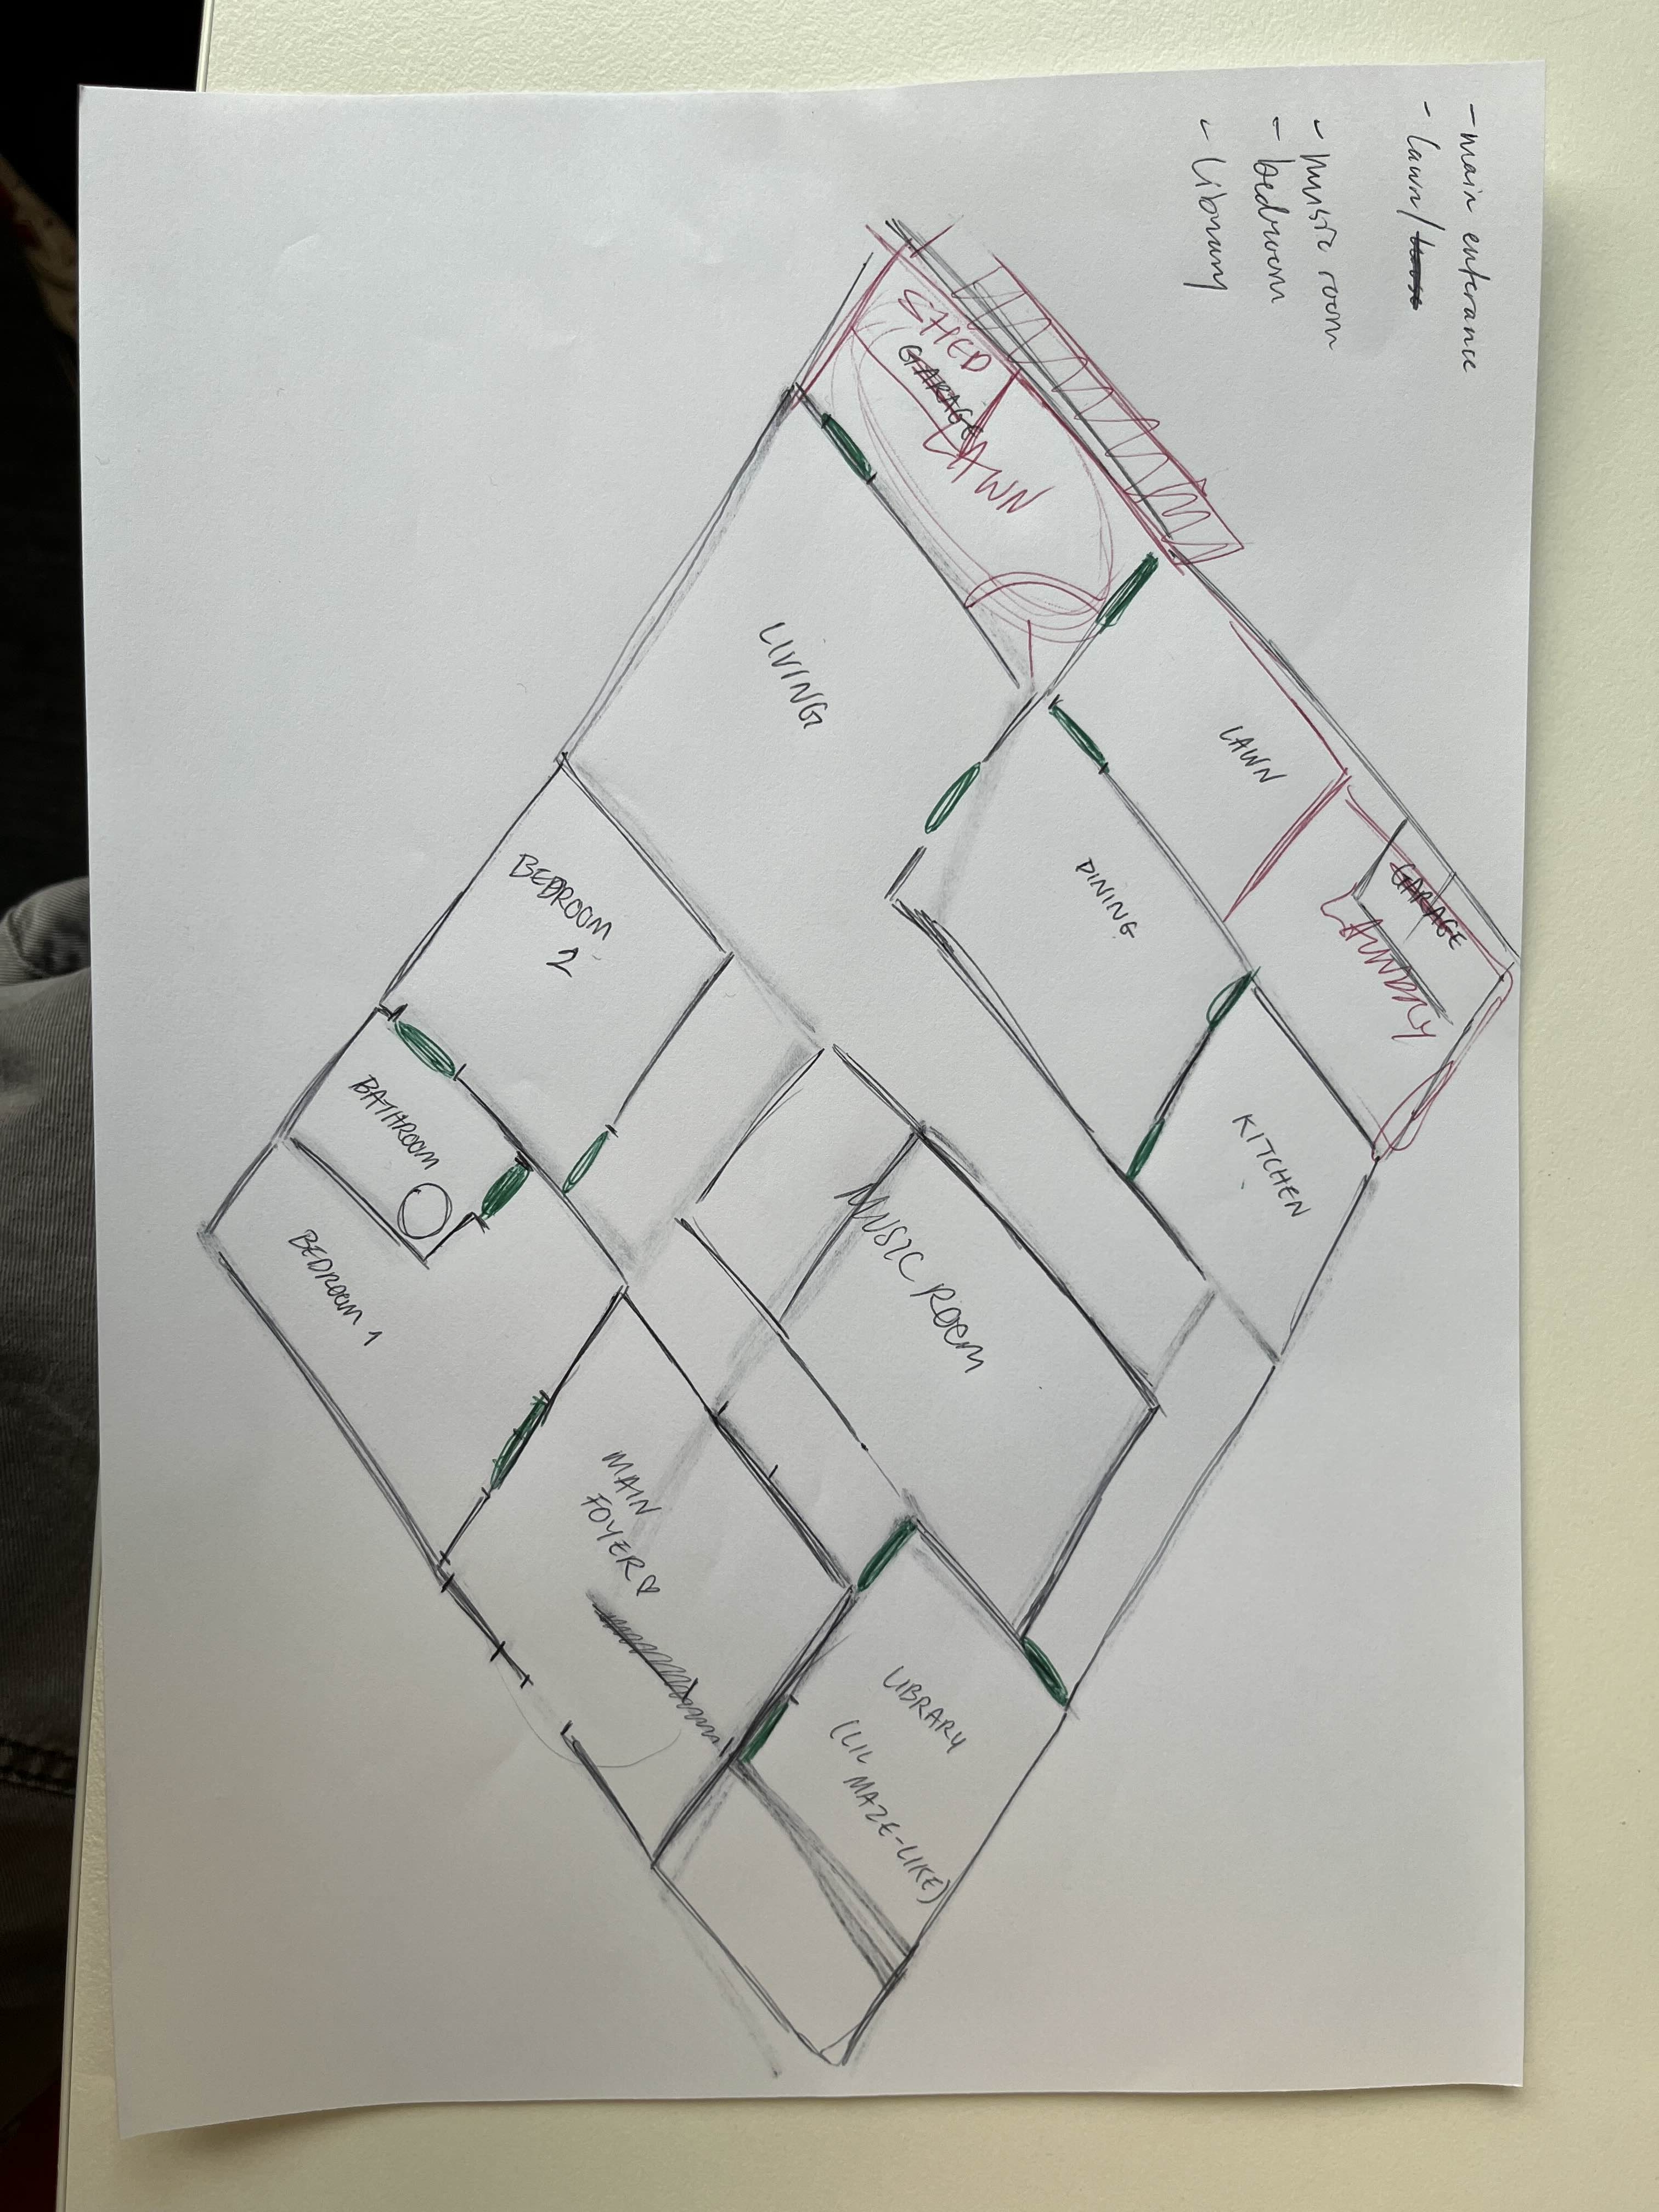 - main enterance
- lawn/
- music room
- bedroom
- library
GARAGE
LAUNDRY
LAWN
KITCHEN
DINING
SHED
GARAGE
LAWN
LIVING
MUSIC ROOM
LIBRARY
(LIL MAZE-LIKE)
MAIN
FOYER♡
BEDROOM
2
BATHROOM
BEDROOM 1